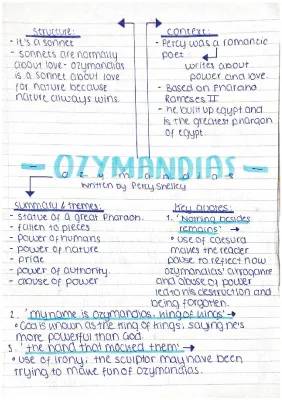 structure:
- it's a sonnet
- sonnets are normally
about love - ozymandias
is a sonnet about love
for nature because
nature always wins
context:
- Percy was a romantic
poet
writes about
power and love
- Based on Pharaoh
Rameses II
- he built up egypt and
is the greatest pharaoh
of egypt
- OZYMANDIAS -
ozymandias
written by Percy Shelley
summary & themes:
- statue of a great Pharaoh.
- fallen to pieces
- power of humans
- power of nature
- pride
- power of authority.
- abuse of power
Key quotes:
1. 'Nothing besides
remains'
• use of caesura
makes the reader
pause to reflect how
ozymandias' arrogance
and abuse of power
lead to his destruction and
being forgotten.
2. 'my name is Ozymandias, King of Kings'
• God is known as the King of Kings, saying he's
more powerful than God.
3. 'the hand that mocked them'
• use of irony, the sculptor may have been
trying to make fun of Ozymandias.